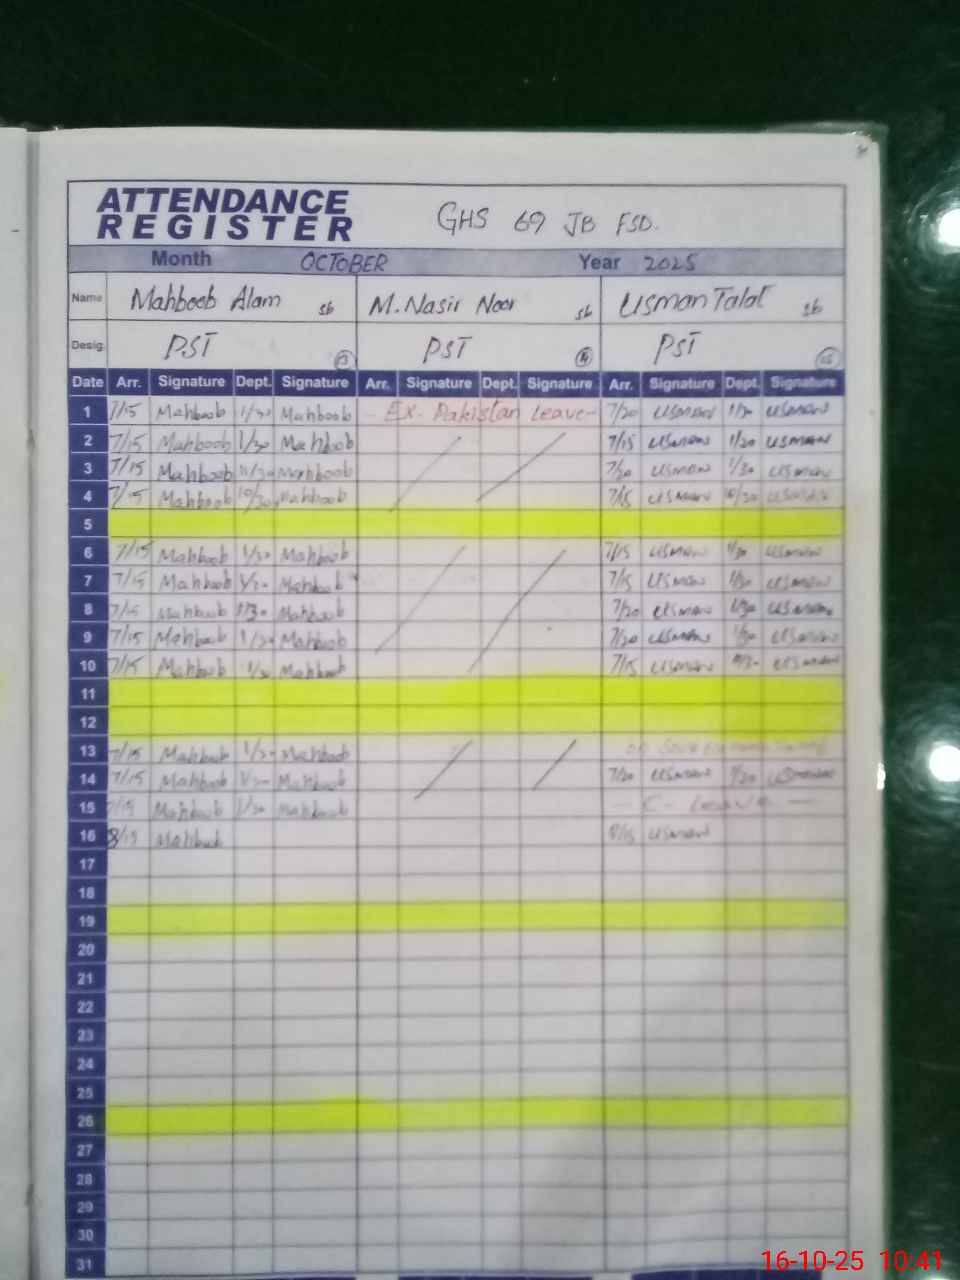 ATTENDANCE
REGISTER
GHS 69 JB FSD.
Month OCTOBER Year 2025
Name Mahboob Alam sb M. Nasir Noor sb Usman Talat sb
Desig. PST 13 PST PST
Date Arr. Signature Dept. Signature Arr. Signature Dept. Signature Arr. Signature Dept. Signature
1 7/15 Mahboob 1/30 Mahboob - Ex. Pakistan Leave - 7/20 USMAN 1/30 USMAN
2 7/15 Mahboob 1/30 Mahboob 7/15 USMAN 1/30 USMAN
3 7/15 Mahboob 11/30 Mahboob 7/20 USMAN 1/30 USMAN
4 7/15 Mahboob 10/30 Mahboob 7/15 USMAN 10/30 USMAN
5
6 7/15 Mahboob 1/30 Mahboob 7/15 USMAN 1/30 USMAN
7 7/15 Mahboob 1/30 Mahboob 7/15 USMAN 1/30 USMAN
8 7/15 Mahboob 1/30 Mahboob 7/20 USMAN 1/30 USMAN
9 7/15 Mahboob 1/30 Mahboob 7/20 USMAN 1/30 USMAN
10 7/15 Mahboob 1/30 Mahboob 7/15 USMAN USMAN
11
12
13 7/15 Mahboob 1/30 Mahboob
14 7/15 Mahboob 1/30 Mahboob 7/20 USMAN USMAN
15 7/15 Mahboob 1/30 Mahboob - C- Leave -
16 8/15 Mahboob 8/15 USMAN
17
18
19
20
21
22
23
24
25
26
27
28
29
30
31
16-10-25 10:41